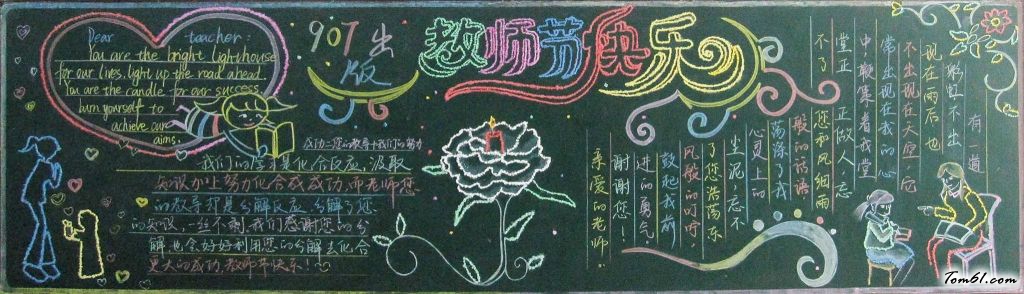 Dear teacher:
You are the bright lighthouse
for our lives, light up the road ahead.
You are the candle for our success
burn yourself to
achieve our
aims.
907出
版
教师节快乐
成功=您的教导+我们的努力
我们的学习是化合反应,汲取
知识加上努力化合成成功,而老师您
的教导却是分解反应,分解了您
的知识,一丝不剩,我们感谢您的分
解,也会好好利用您的分解去化合
更大的成功,教师节快乐!
有一道
彩虹不出
现在雨后,也
不出现在天空,它
常出现在我的心
中,鞭策着我堂
堂正正做人,忘
不了您和风细雨
般的话语,
荡涤了我
心灵上的
尘泥,忘不
了您浩荡东
风般的叮咛,
鼓起我前
进的勇气。
谢谢您!
亲爱的老师
Tom61.com